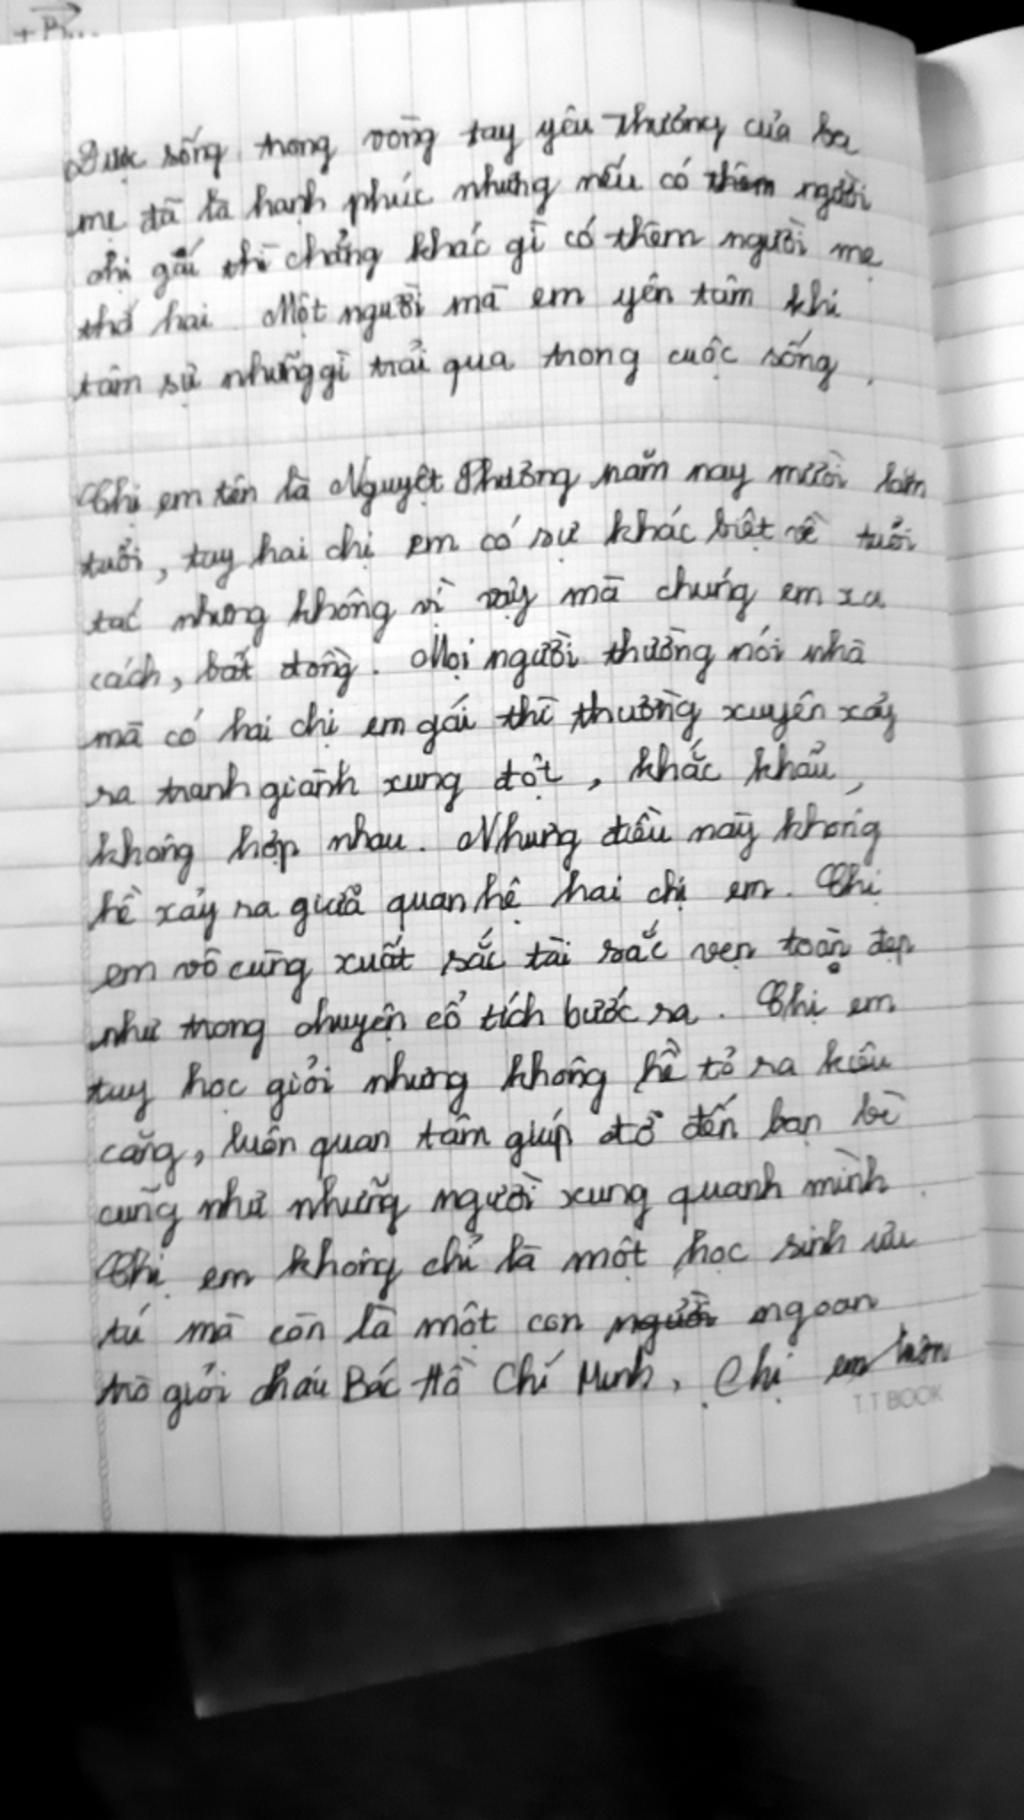 + P...
Được sống trong vòng tay yêu thương của ba
mẹ đã là hạnh phúc nhưng nếu có thêm người
chị gái thì chẳng khác gì có thêm người mẹ
thứ hai. Một người mà em yên tâm khi
tâm sự những gì trải qua trong cuộc sống.
Chị em tên là Nguyệt Phương năm nay mười lăm
tuổi, tuy hai chị em có sự khác biệt về tuổi
tác nhưng không vì vậy mà chúng em xa
cách, bất đồng. Mọi người thường nói nhà
mà có hai chị em gái thì thường xuyên xảy
ra tranh giành xung đột, khắc khẩu,
không hợp nhau. Nhưng điều này không
hề xảy ra giữa quan hệ hai chị em. Chị
em vô cùng xuất sắc tài sắc vẹn toàn đẹp
như trong chuyện cổ tích bước ra. Chị em
tuy học giỏi nhưng không hề tỏ ra kiêu
căng, luôn quan tâm giúp đỡ đến bạn bè
cũng như những người xung quanh mình.
Chị em không chỉ là một học sinh ưu
tú mà còn là một con ngoan
trò giỏi cháu Bác Hồ Chí Minh. Chị em luôn
T.T BOOK